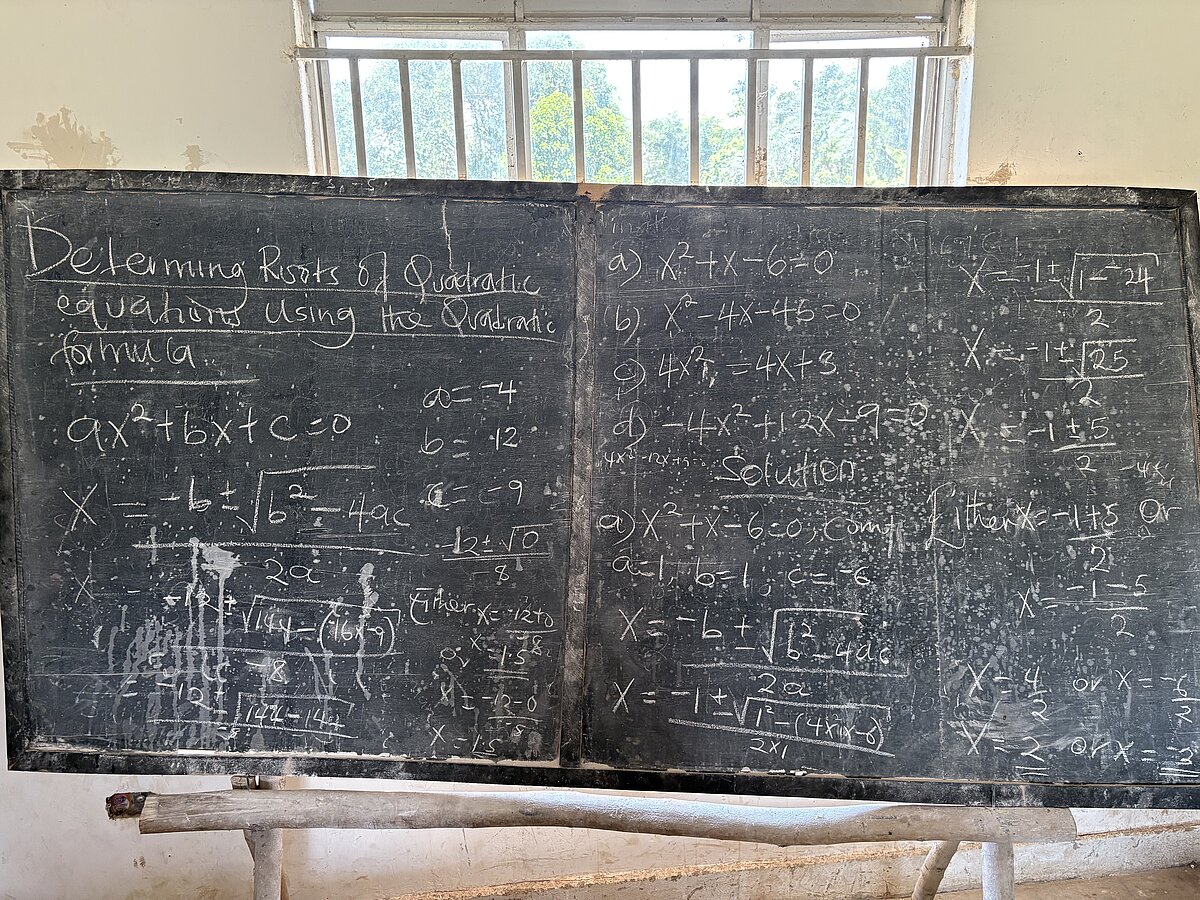 Determing Roots of Quadratic
equations Using the Quadratic
formula
ax² + bx + c = 0
X = -b ± √(b² - 4ac)
2a
X = -12 ± √(144 - (-16x-9))
-8
= -12 ± √(144 - 144)
-8
a = -4
b = 12
c = -9
-12 ± √0
-8
Either x = -12+0
-8
x = 1.5
or
x = -12-0
-8
X = 1.5
a) x² + x - 6 = 0
b) x² - 4x - 45 = 0
c) 4x² = 4x + 3
d) -4x² + 12x - 9 = 0
4x² - 12x + 9 = 0
Solution
a) x² + x - 6 = 0,
a = 1, b = 1, c = -6
X = -b ± √(b² - 4ac)
2a
X = -1 ± √(1² - (4x1x-6))
2x1
X = -1 ± √(1 - -24)
2
X = -1 ± √25
2
X = -1 ± 5
2
Either X = -1+5 Or
2
X -1-5
2
X = 4/2 or X = -6/2
X = 2 or x = -3